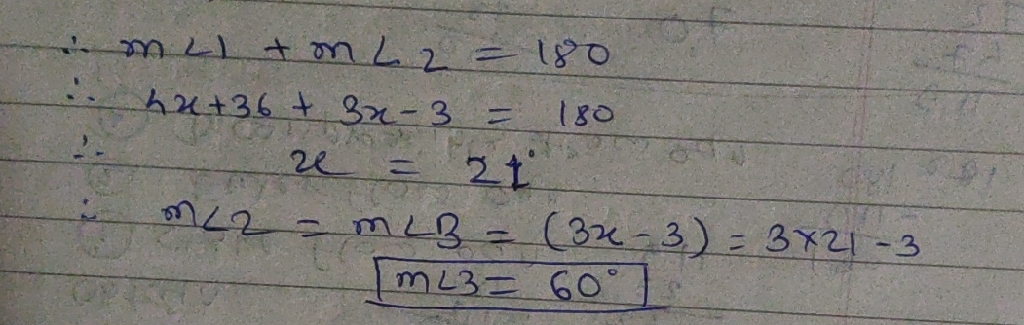 ∴ m∠1 + m∠2 = 180
∴ 4x+36 + 3x-3 = 180
∴ x = 21°
∴ m∠2 = m∠3 = (3x-3) = 3×21-3
m∠3 = 60°